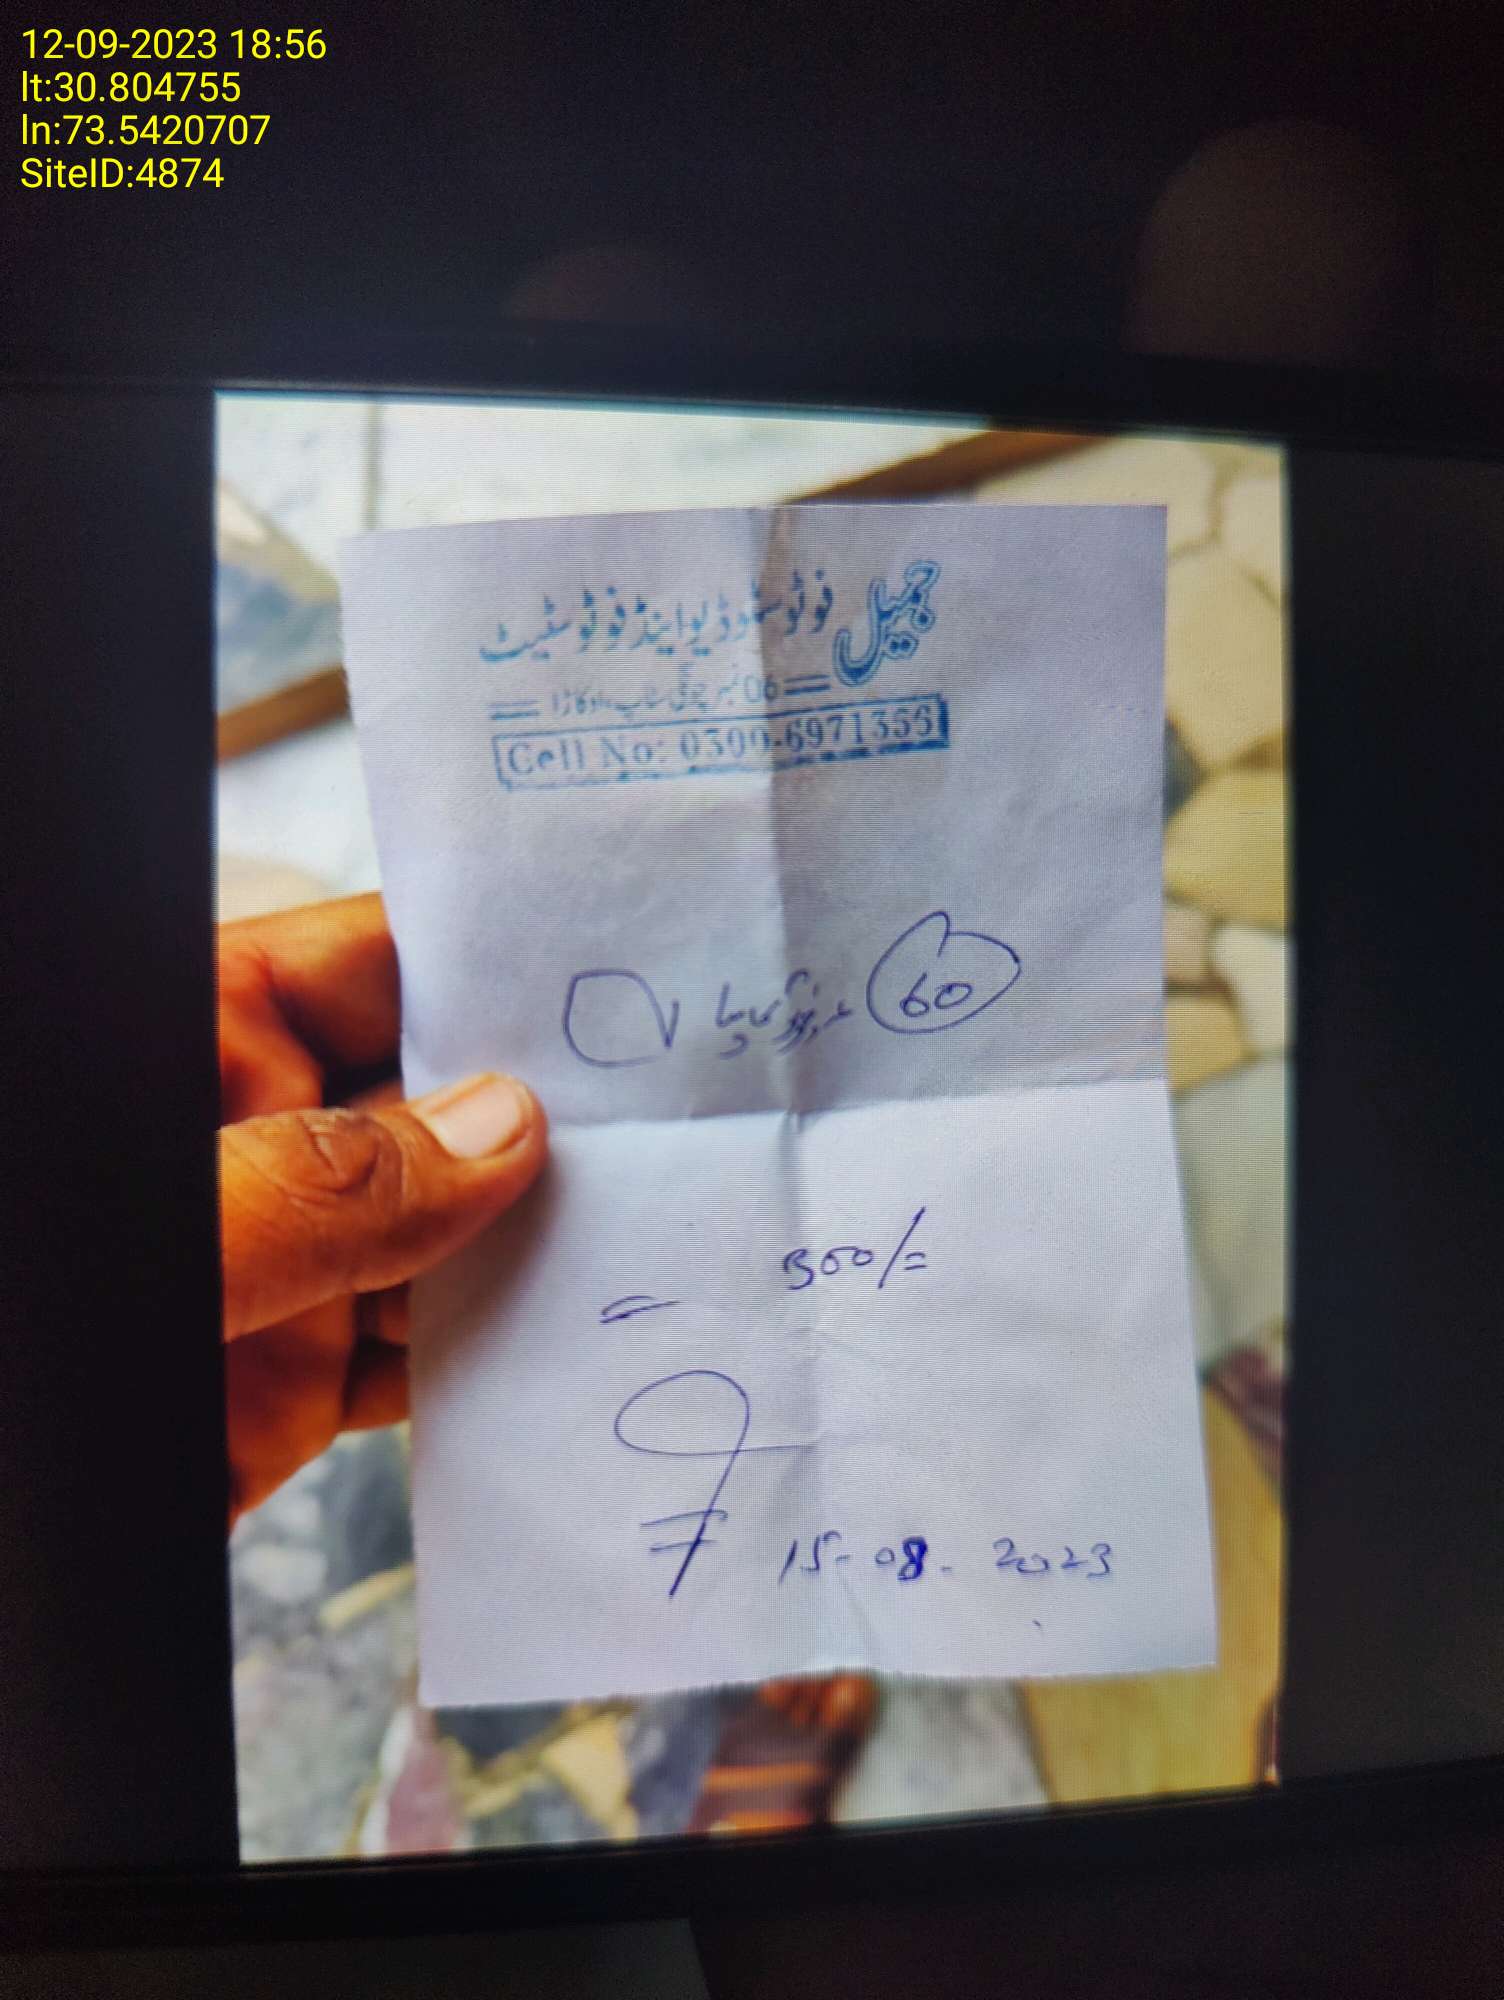 12-09-2023 18:56
lt:30.804755
ln:73.5420707
SiteID:4874
جمیل فوٹو سٹوڈیو اینڈ فوٹو سٹیٹ
06 نمبر چونگی سٹاپ، اوکاڑا
Cell No: 0300-6971356
60
300/=
15-08-2023